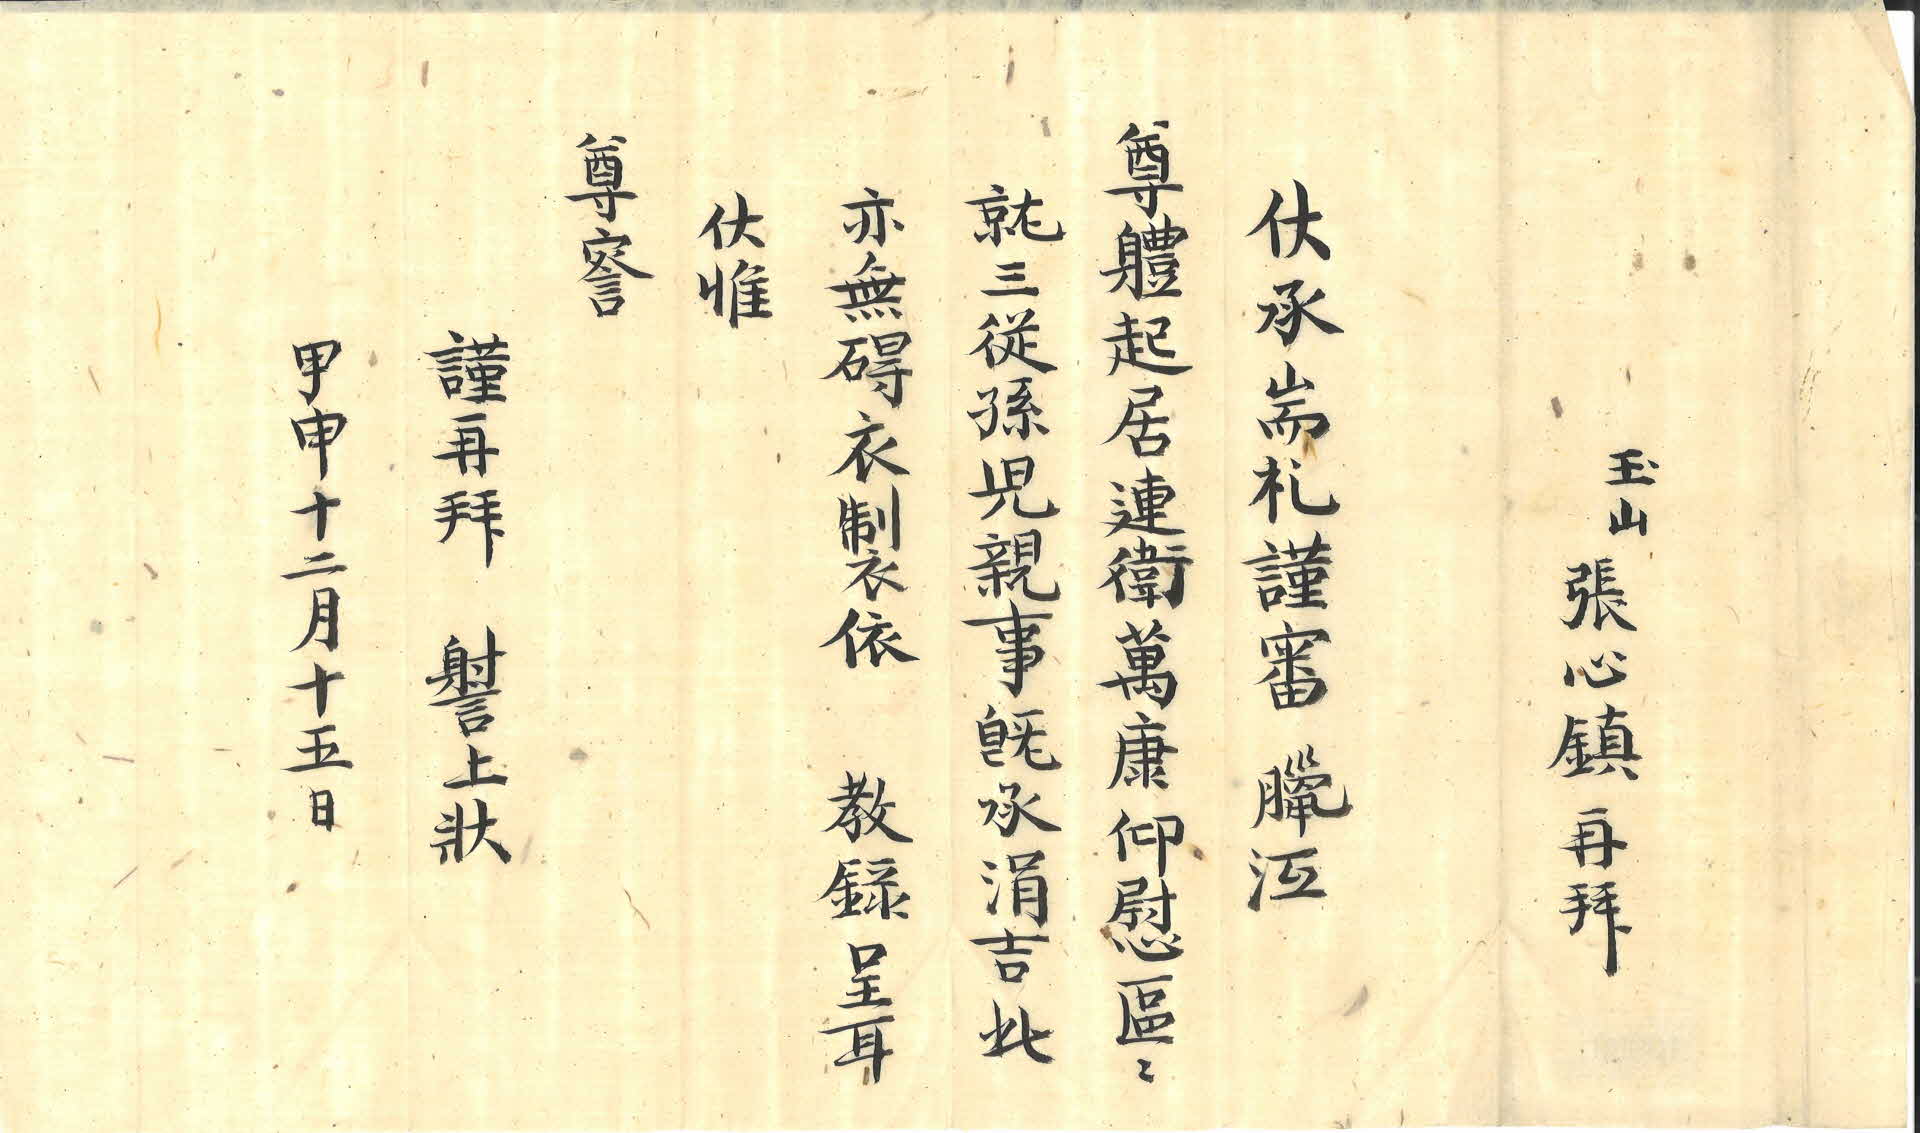 玉山 張心鎭 再拜
伏承耑札謹審 臘沍
尊軆起居連衛萬康仰慰區〻
就三從孫児親事旣承涓吉此
亦無碍衣製依 教錄呈耳
伏惟
尊詧
謹再拜 謝上狀
甲申十二月十五日